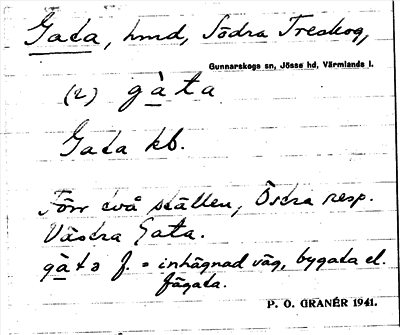 Gata, hmd, Södra Treskog,
Gunnarskogs sn, Jösse hd, Värmlands l.
(2) gàta
Gata kb.
Förr två ställen, Östra resp.
Västra Gata.
gàtə f. = inhägnad väg, bygata el.
fägata.
P. O. GRANÉR 1941.